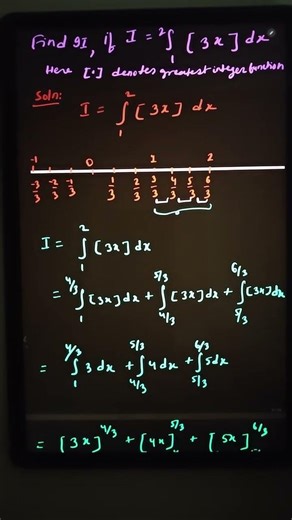 Find 9I, if I = ²∫₁ [3x] dx.
Here [•] denotes greatest integer function
Soln:
I = ∫₁² [3x] dx
-1 0 1 2
-3/3 -2/3 -1/3 1/3 2/3 3/3 4/3 5/3 6/3
I = ∫₁² [3x] dx
= ∫₁^{4/3} [3x] dx + ∫_{4/3}^{5/3} [3x] dx + ∫_{5/3}^{6/3} [3x] dx
= ∫₁^{4/3} 3 dx + ∫_{4/3}^{5/3} 4 dx + ∫_{5/3}^{6/3} 5 dx
= [3x]^{4/3} + [4x]^{5/3} + [5x]^{6/3}